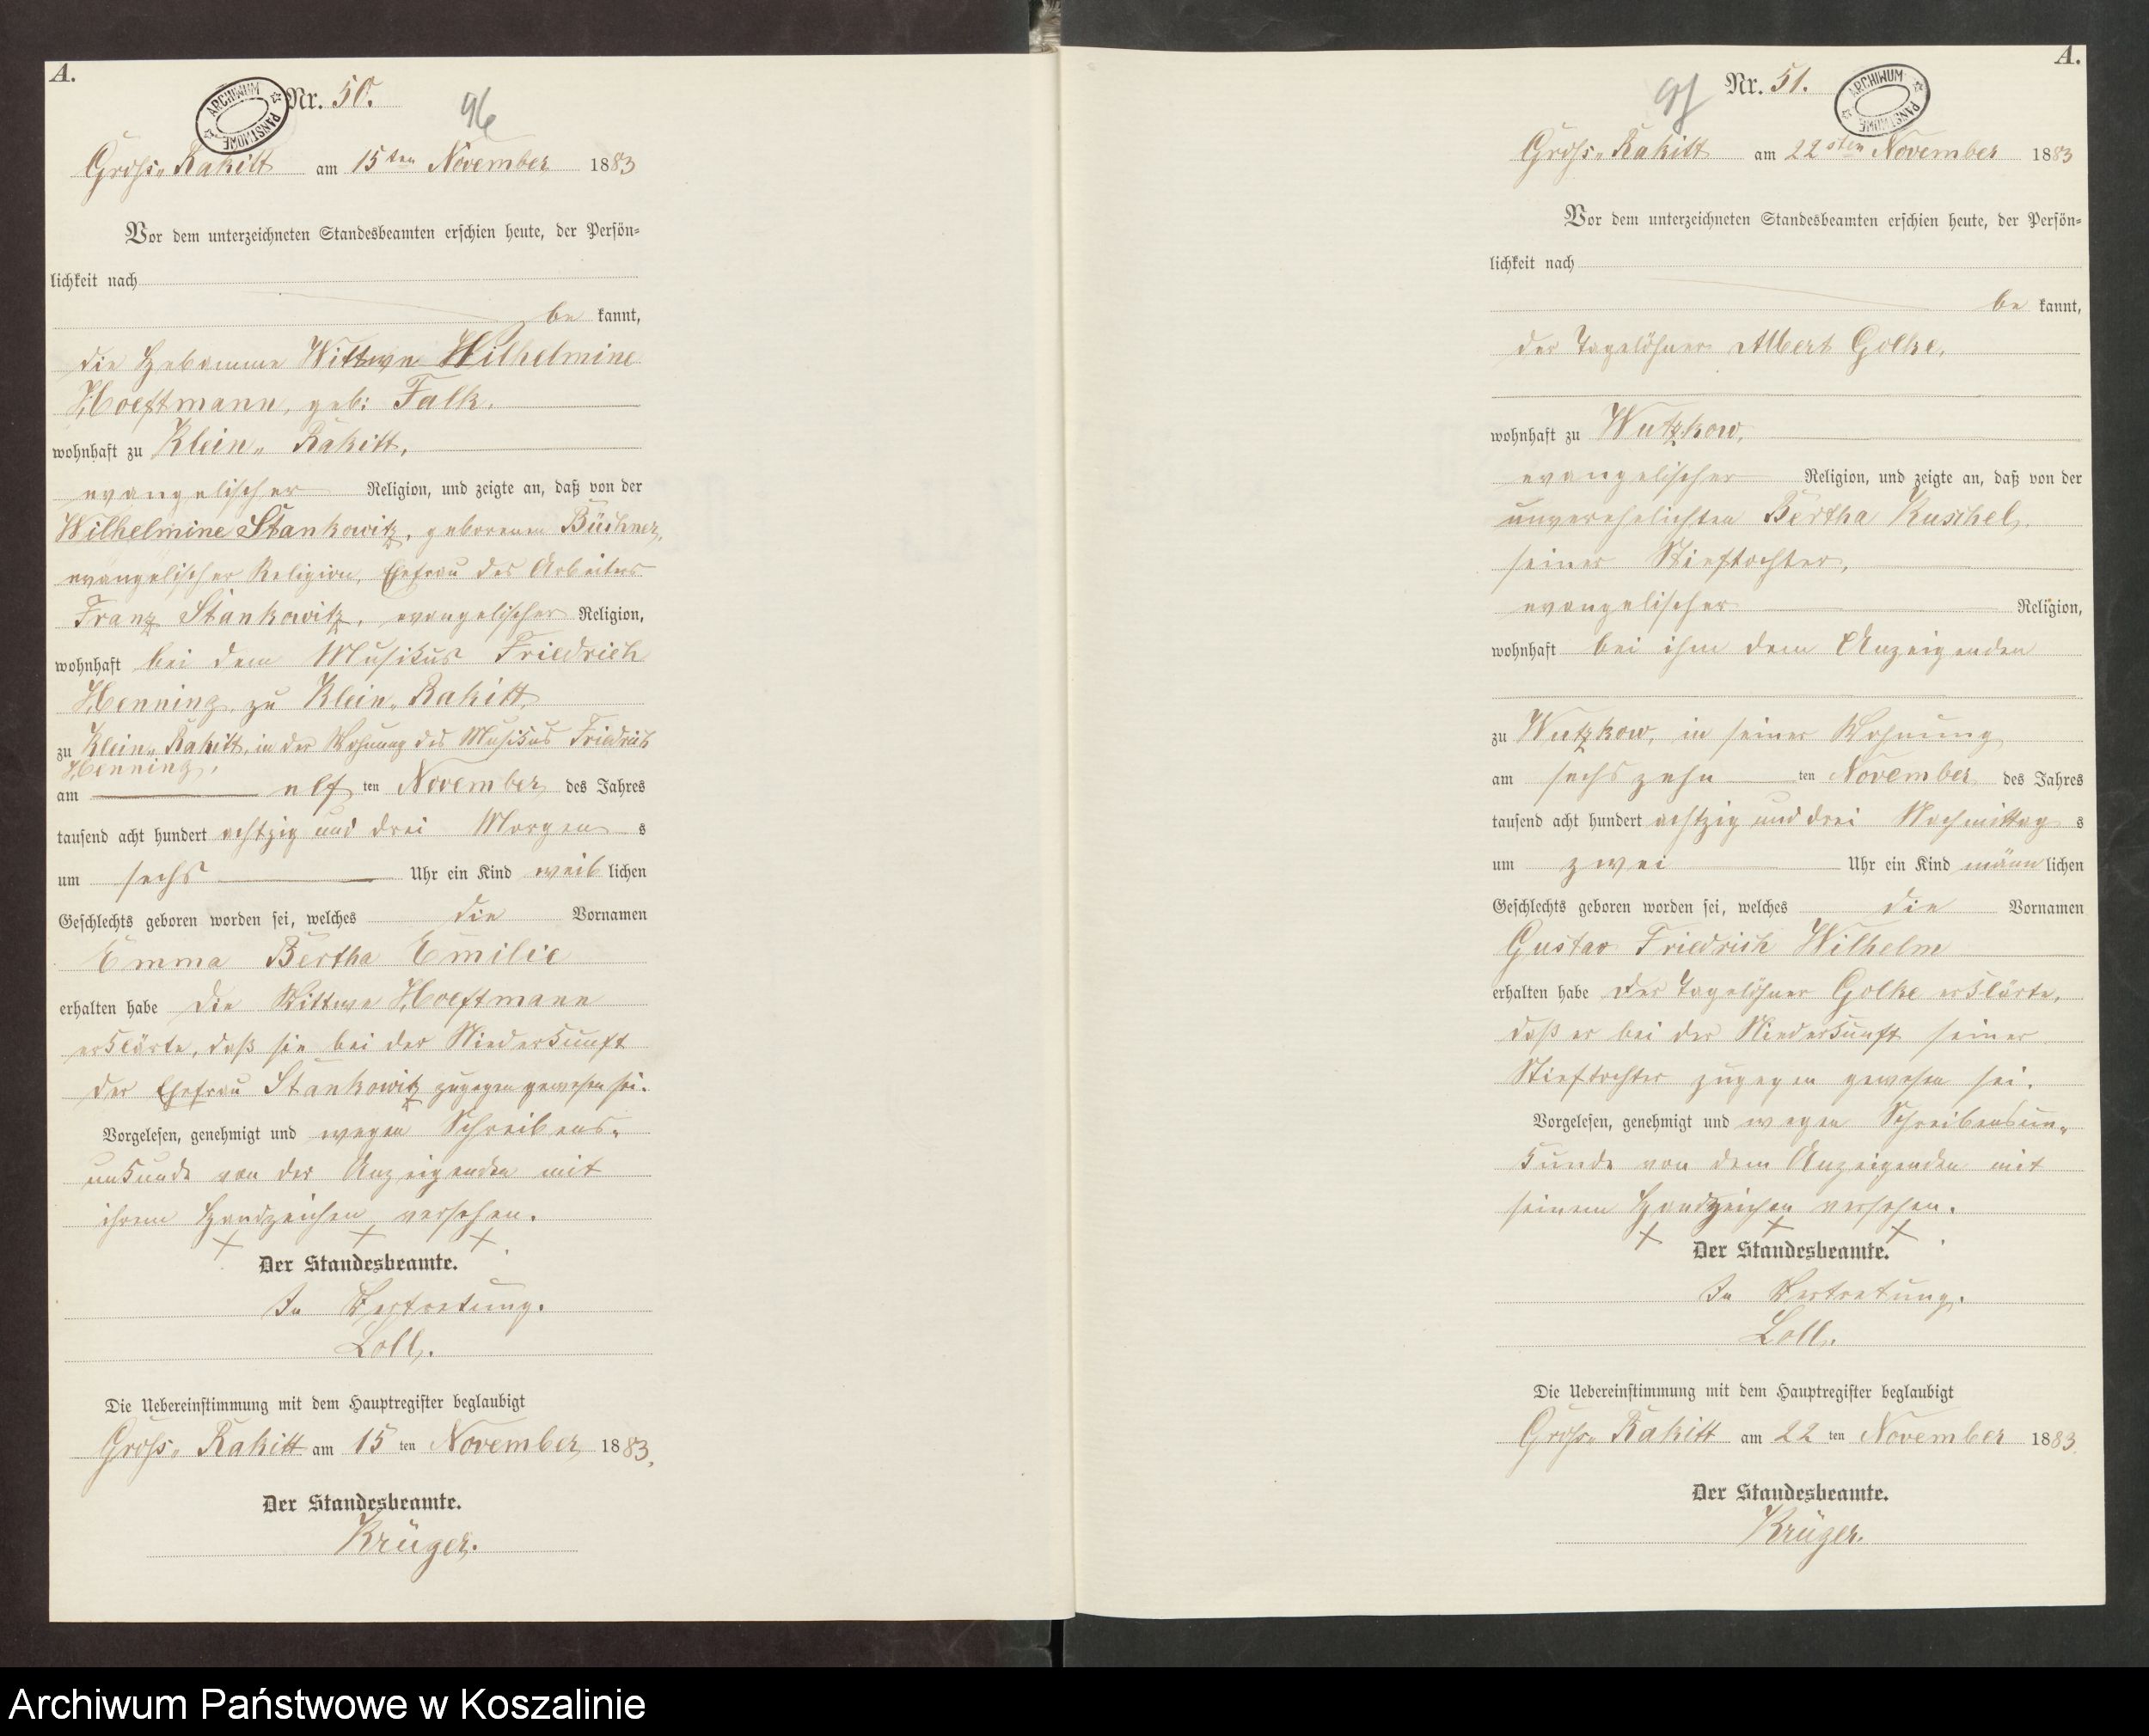 A.
ARCHIWUM PAŃSTWOWE
Nr. 50.
Groß-Rakitt am 15ten November 1883
Vor dem unterzeichneten Standesbeamten erschien heute, der Persön-
lichkeit nach
be kannt,
die Hebamme Wittwe Wilhelmine
Hoeftmann, geb: Falk,
wohnhaft zu Klein-Rakitt,
evangelischer Religion, und zeigte an, daß von der
Wilhelmine Stankowitz, geborenen Büchner,
evangelischer Religion, Ehefrau des Arbeiters
Franz Stankowitz, evangelischer Religion,
wohnhaft bei dem Musikus Friedrich
Henning, zu Klein-Rakitt,
zu Klein-Rakitt, in der Wohnung des Musikus Friedrich
Henning,
am elf ten November des Jahres
tausend acht hundert achtzig und drei Morgen s
um sechs Uhr ein Kind weib lichen
Geschlechts geboren worden sei, welches die Vornamen
Emma Bertha Emilie
erhalten habe Die Wittwe Hoeftmann
erklärte, daß sie bei der Niederkunft
der Ehefrau Stankowitz zugegen gewesen sei.
Vorgelesen, genehmigt und wegen Schreibens-
unkunde von der Anzeigenden mit
ihrem Handzeichen versehen.
+ + +
Der Standesbeamte.
In Vertretung.
Loll.
Die Uebereinstimmung mit dem Hauptregister beglaubigt
Groß-Rakitt am 15 ten November 1883.
Der Standesbeamte.
Krüger.
A.
Nr. 51.
ARCHIWUM PAŃSTWOWE
Groß-Rakitt am 22sten November 1883
Vor dem unterzeichneten Standesbeamten erschien heute, der Persön-
lichkeit nach
be kannt,
der Tagelöhner Albert Golke,
wohnhaft zu Wutzkow,
evangelischer Religion, und zeigte an, daß von der
unverehelichten Bertha Kuschel,
seiner Stieftochter,
evangelischer Religion,
wohnhaft bei ihm dem Anzeigenden
zu Wutzkow, in seiner Wohnung
am sechszehn ten November des Jahres
tausend acht hundert achtzig und drei Nachmittag s
um zwei Uhr ein Kind männ lichen
Geschlechts geboren worden sei, welches die Vornamen
Gustav Friedrich Wilhelm
erhalten habe Der Tagelöhner Golke erklärte,
daß er bei der Niederkunft seiner
Stieftochter zugegen gewesen sei.
Vorgelesen, genehmigt und wegen Schreibensun-
kunde von dem Anzeigenden mit
seinem Handzeichen versehen.
+ + +
Der Standesbeamte.
In Vertretung.
Loll.
Die Uebereinstimmung mit dem Hauptregister beglaubigt
Groß-Rakitt am 22 ten November 1883.
Der Standesbeamte.
Krüger.
Archiwum Państwowe w Koszalinie